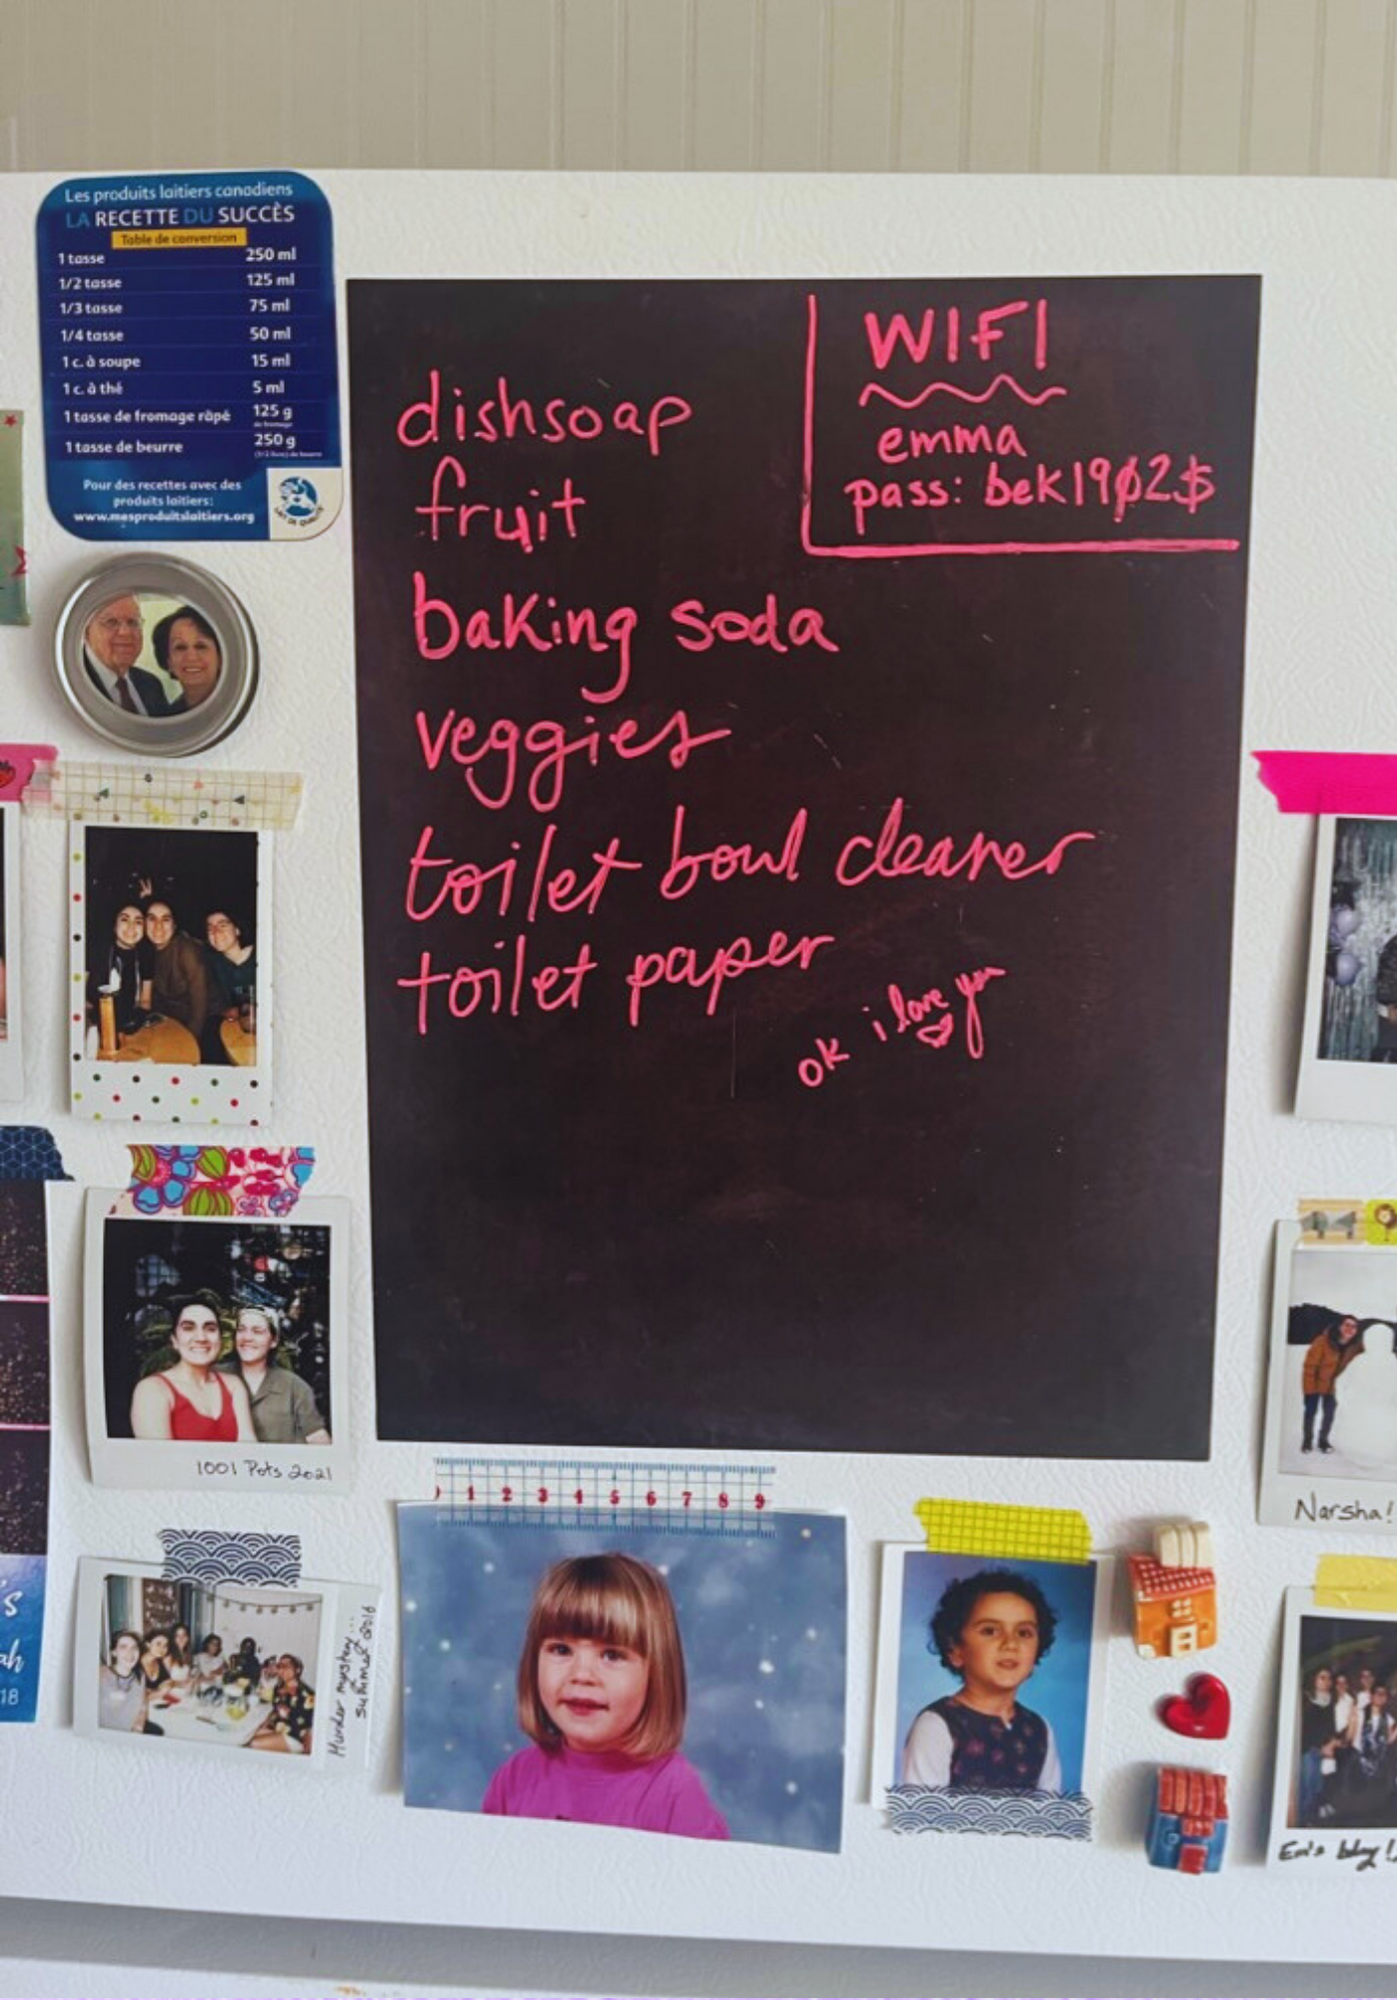 Les produits laitiers canadiens
LA RECETTE DU SUCCÈS
Table de conversion
1 tasse 250 ml
1/2 tasse 125 ml
1/3 tasse 75 ml
1/4 tasse 50 ml
1 c. à soupe 15 ml
1 c. à thé 5 ml
1 tasse de fromage râpé 125 g
de fromage
1 tasse de beurre 250 g
Pour des recettes avec des
produits laitiers:
www.mesproduitslaitiers.org
WIFI
emma
pass: bek1902$
dishsoap
fruit
baking soda
veggies
toilet bowl cleaner
toilet paper
ok i love you
1001 Pots 2021
1 2 3 4 5 6 7 8 9
Murder mystery...
summer 2016
Narsha!
18